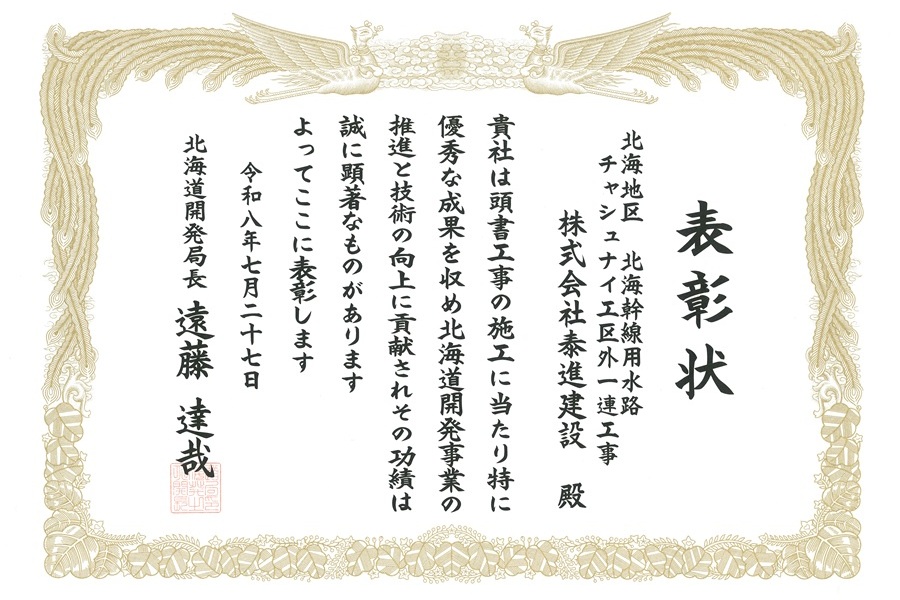 表彰状
北海地区　北海幹線用水路
チャシュナイ工区外一連工事
株式会社泰進建設　殿
貴社は頭書工事の施工に当たり特に
優秀な成果を収め北海道開発事業の
推進と技術の向上に貢献されその功績は
誠に顕著なものがあります
よってここに表彰します
令和八年七月二十七日
北海道開発局長　遠藤　達哉